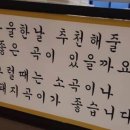 우울한날 추천해줄
좋은 곡이 있을까요
그럴때는 소곡이나
돼지곡이가 좋습니다